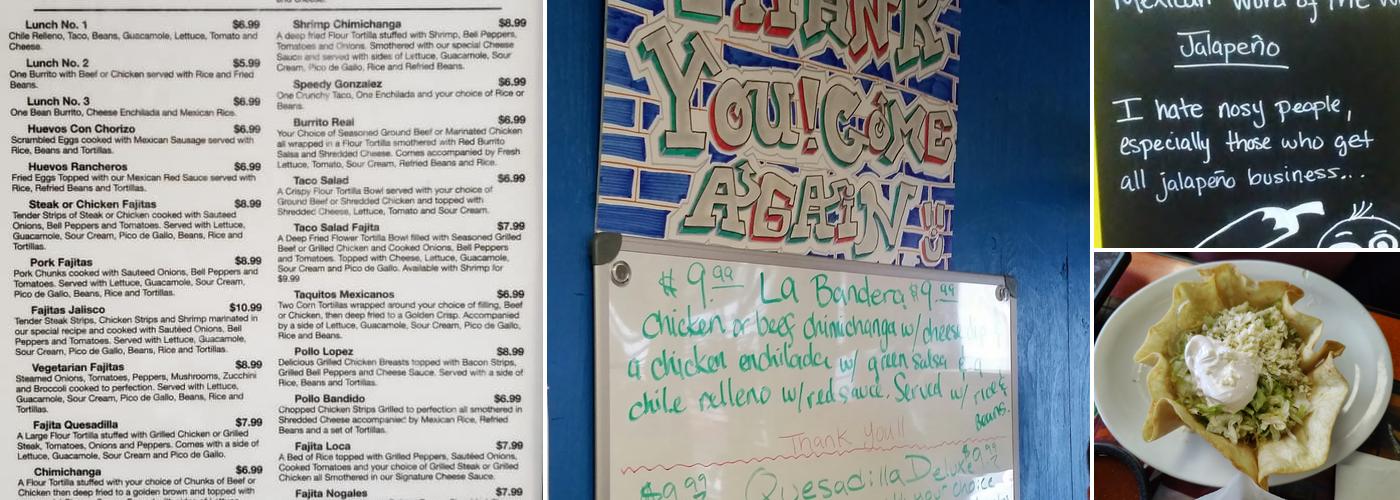 Lunch No. 1 $6.99
Chile Relleno, Taco, Beans, Guacamole, Lettuce, Tomato and
Cheese.
Lunch No. 2 $5.99
One Burrito with Beef or Chicken served with Rice and Fried
Beans.
Lunch No. 3 $6.99
One Bean Burrito, Cheese Enchilada and Mexican Rice.
Huevos Con Chorizo $6.99
Scrambled Eggs cooked with Mexican Sausage served with
Rice, Beans and Tortillas.
Huevos Rancheros $6.99
Fried Eggs Topped with our Mexican Red Sauce served with
Rice, Refried Beans and Tortillas.
Steak or Chicken Fajitas $8.99
Tender Strips of Steak or Chicken cooked with Sauteed
Onions, Bell Peppers and Tomatoes. Served with Lettuce,
Guacamole, Sour Cream, Pico de Gallo, Beans, Rice and
Tortillas.
Pork Fajitas $8.99
Pork Chunks cooked with Sauteed Onions, Bell Peppers and
Tomatoes. Served with Lettuce, Guacamole, Sour Cream,
Pico de Gallo, Beans, Rice and Tortillas.
Fajitas Jalisco $10.99
Tender Steak Strips, Chicken Strips and Shrimp marinated in
our special recipe and cooked with Sautéed Onions, Bell
Peppers and Tomatoes. Served with Lettuce, Guacamole,
Sour Cream, Pico de Gallo, Beans, Rice and Tortillas.
Vegetarian Fajitas $8.99
Steamed Onions, Tomatoes, Peppers, Mushrooms, Zucchini
and Broccoli cooked to perfection. Served with Lettuce,
Guacamole, Sour Cream, Pico de Gallo, Beans, Rice and
Tortillas.
Fajita Quesadilla $7.99
A Large Flour Tortilla stuffed with Grilled Chicken or Grilled
Steak, Tomatoes, Onions and Peppers. Comes with a side of
Lettuce, Guacamole, Sour Cream, Pico de Gallo and Beans.
Chimichanga $6.99
A Flour Tortilla stuffed with your choice of Chunks of Beef or
Chicken then deep fried to a golden brown and topped with
Shrimp Chimichanga $8.99
A deep fried Flour Tortilla stuffed with Shrimp, Bell Peppers,
Tomatoes and Onions. Smothered with our special Cheese
Sauce and served with sides of Lettuce, Guacamole, Sour
Cream, Pico de Gallo, Rice and Refried Beans.
Speedy Gonzalez $6.99
One Crunchy Taco, One Enchilada and your choice of Rice or
Beans.
Burrito Real $6.99
Your Choice of Seasoned Ground Beef or Marinated Chicken
all wrapped in a Flour Tortilla smothered with Red Burrito
Salsa and Shredded Cheese. Comes accompanied by Fresh
Lettuce, Tomato, Sour Cream, Refried Beans and Rice.
Taco Salad $6.99
A Crispy Flour Tortilla Bowl served with your choice of
Ground Beef or Shredded Chicken and topped with
Shredded Cheese, Lettuce, Tomato and Sour Cream.
Taco Salad Fajita $7.99
A Deep Fried Flower Tortilla Bowl filled with Seasoned Grilled
Beef or Grilled Chicken and Cooked Onions, Bell Peppers
and Tomatoes. Topped with Cheese, Lettuce, Guacamole,
Sour Cream and Pico de Gallo. Available with Shrimp for
$9.99
Taquitos Mexicanos $6.99
Two Corn Tortillas wrapped around your choice of filling, Beef
or Chicken, then deep fried to a Golden Crisp. Accompanied
by a side of Lettuce, Guacamole, Sour Cream, Pico de Gallo,
Rice and Beans.
Pollo Lopez $8.99
Delicious Grilled Chicken Breasts topped with Bacon Strips,
Grilled Bell Peppers and Cheese Sauce. Served with a side of
Rice, Beans and Tortillas.
Pollo Bandido $6.99
Chopped Chicken Strips Grilled to perfection all smothered in
Shredded Cheese accompanied by Mexican Rice, Refried
Beans and a set of Tortillas.
Fajita Loca $7.99
A Bed of Rice topped with Grilled Peppers, Sautéed Onions,
Cooked Tomatoes and your choice of Grilled Steak or Grilled
Chicken all Smothered in our Signature Cheese Sauce.
Fajita Nogales $7.99
THANK
YOU! COME
AGAIN!!
$9.99 La Bandera $9.99
Chicken or beef chimichanga w/ cheese
a chicken enchilada w/ green salsa & a
chile relleno w/ red sauce. Served w/ rice &
Beans.
Thank You!!
$9.99 Quesadilla Deluxe $9.99
your choice
Mexican Word of the
Jalapeño
I hate nosy people,
especially those who get
all jalapeño business...